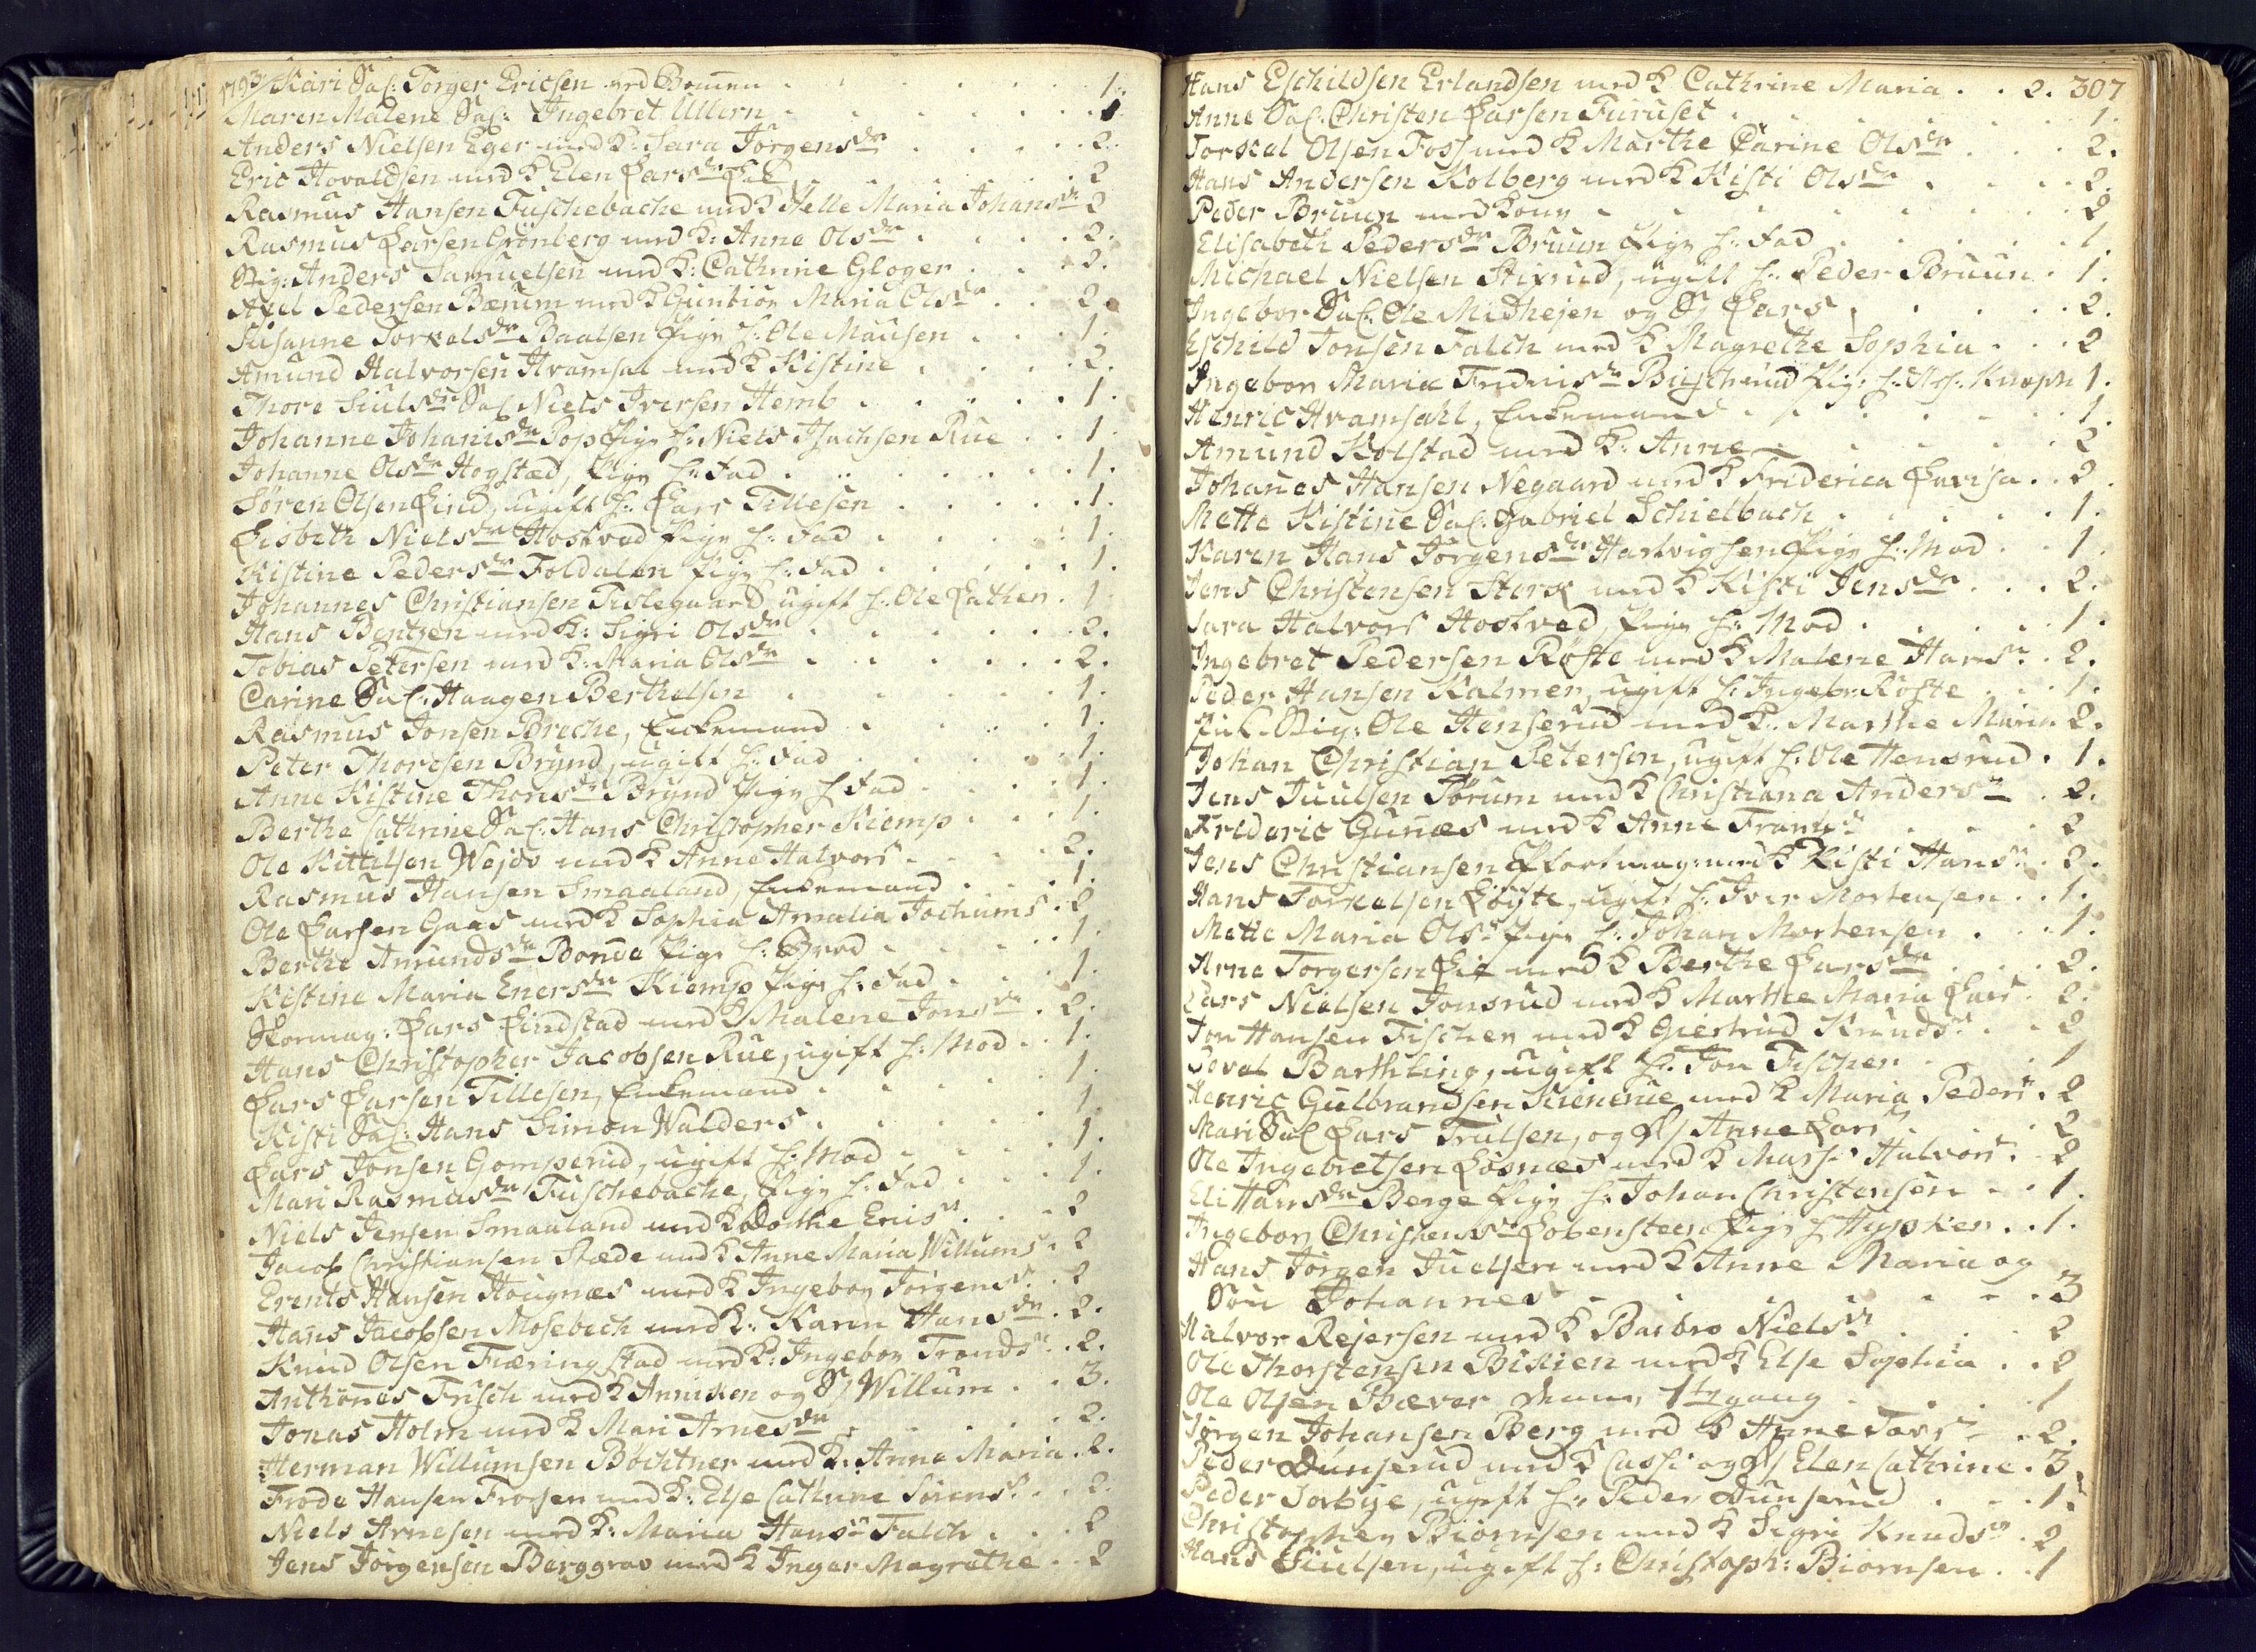 1793/ Kari Sal: Torger Ericsen ved Bommen . 1.
Maren Malene Sal: Ingebret Ullern . 1.
Anders Nielsen Eger med K: Sara Jörgensdr . 2.
Eric Hovaldsen med K Elen Larsdr . 2
Rasmus Hansen Fuschebache med K Helle Maria Johansdr 2
Rasmus Larsen Grönberg med K: Anne Olsdr . 2.
Stig: Anders Samuelsen med K: Cathrine Gloger . 2.
Axel Pedersen Bærum med K Gunbiör Maria Olsdr . 2.
Susanne Torkelsdr Baalsen Pige h: Ole Mausen . 1.
Amund Halvorsen Hvamsal med K Kistine . 2.
Thore Siulsdr Sal Niels Iversen Hemb . 1.
Johanne Johanisdr Pop Pige h: Niels Isachsen Rue . 1.
Johanne Olsdr Hogstad, Pige h: Fad . 1.
Sören Olsen Lind, ugift h: Lars Tillesen . 1.
Lisbeth Nielsdr Hoskved Pige h: Fad . 1.
Kistine Pedersdr Foldalen Pige h: Fad . 1.
Johannes Christiansen Tislegaard ugift h: Ole Lathen . 1
Hans Bentzen med K: Sigri Olsdr . 2.
Tobias Petersen med K: Maria Olsdr . 2.
Carine Sal: Haagen Berthelsen . 1.
Rasmus Jonsen Breche, Enkemand . 1.
Peter Thoresen Brynd, ugift h: Fad . 1.
Anne Kistine Thorisdr Brynd Pige h Fad . 1.
Berthe Cathrine Sal: Hans Christopher Kiemp . 1.
Ole Kittilsen Wejdo med K Anne Halvors . 2.
Rasmus Hansen Smaaland, Enkemand . 1.
Ole Larsen Gaas med K Sophia Amalia Jochums . 2
Berthe Amundsdr Bonde Pige h: . 1.
Kistine Maria Enersdr Kiemp Pige h: Fad . 1.
Skormag: Lars Lindstad med K Malene Jonsdr . 2.
Hans Christopher Jacobsen Rue, ugift h: Mod . 1.
Lars Larsen Tillesen, Enkemand . 1.
Kisti Sal: Hans Simon Walders . 1
Lars Jonsen Gomperud, ugift h: Mod . 1.
Mari Rasmusdr Fuschebache, Pige h: Fad . 1.
Niels Jensen Smaaland med K Dorthe Erisdr . 2
Jacob Christiansen Stæde med K Anne Maria Willums . 2
Erents Hansen Hougnæs med K Ingebor Jörgens . 2
Hans Jacobsen Mosebech med K: Karen Hansdr . 2.
Knud Olsen Fiæringstad med K: Ingebor Tronds . 2.
Anthones Frisch med K Anniken og S/ Willum . 3.
Jonas Holm med K Mari Arnesdr . 2.
Herman Willumsen Böchtner med K: Anne Maria . 2.
Frode Hansen Frogner med K: Else Cathrine Sörens . 2.
Niels Arnesen med K: Maria Hansdr Falch . 2
Jens Jörgensen Berggrav med K Inger Magrethe . 2
Hans Eschildsen Erlandsen med K Cathrine Maria . . 2. 307
Anne Sal: Christen Larsen Furuset . 1.
Torkel Olsen Foss med K Marthe Carine Olsdr . 2.
Hans Andersen Kolberg med K Kisti Olsdr . 2.
Peder Bruun med Kone . 2
Elisabeth Pedersdr Bruun Pige h: Fad . 1.
Michael Nielsen Stixrud, ugift h: Peder Bruun . 1.
Ingebor Sal: Ole Midhejen og S/ Lars . 2.
Eschild Jonsen Falch med K Magrethe Sophia . 2
Ingebor Maria Fredricsdr Buschrud Pig: h: Knoph 1.
Henric Hvamsahl, Enkemand . 1.
Amund Kolstad med K: Anne . 2
Johanes Hansen Negaard med K Friderica Lavisa . 2.
Mette Kistine Sal: Gabriel Schielbach . 1.
Karen Hans Jörgensdr Hartvigsen Pige h: Mod . 1.
Jens Christensen Stork med K Kisti Jensdr . 2.
Sara Halvors Hoskved, Pige h: Mod . 1.
Ingebret Pedersen Röste med K Malene Hans . 2.
Peder Hansen Kalmer, ugift h: Ingebr: Röste . 1.
Stig: Ole Hensrud med K: Marthe Maria 2.
Johan Christian Petersen, ugift h: Ole Hensrud . 1.
Jens Juulsen Sörum med K Christiana Anders . 2.
Frideric Gunæs med K Anne Frants . 2
Jens Christiansen Skormag: med K Kisti Hans . 2.
Hans Torkelsen Löyte, ugift h: Iver Mortensen . 1.
Mette Maria Ols Pige h: Johan Mortensen . 1.
Arne Torgersen Lie med K Berthe Larsdr . 2.
Lars Nielsen Jonsrud med K Marthe Maria Lars . 2.
Jon Hansen Fischer med K Giertrud Knuds . 2
Poval Barthling, ugift h: Jon Fischer . 1
Henric Gulbrandsen med K Maria Peders . 2
Mari Sal Lars Trulsen, og D/ Anne Lars . 2
Ole Ingebretsen Losnæs med K Masse Halvors . 2
Eli Hansdr Berge Pige h: Johan Christensen . 1.
Ingebor Christensdr Lobensteen Pige h Hypken . 1.
Hans Jörgen Juelsen med K Anne Maria og
Sön Johannes . 3
Halvor Rejersen med K Barbro Niels . 2
Ole Thorstensen Bikien med K Else Sophia . 2
Ole Olsen Bæver 1te gang . 1
Jörgen Johansen Berg med K Anne Tors . 2.
Peder Dunserud med K Casse og D/ Elen Cathrine . 3.
Peder Sorbye, ugift h: Peder Dunserud . 1.
Christopher Biörnsen med K Sigri Knuds . 2
Hans Siulsen, ugift h: Christoph: Biörnsen . 1